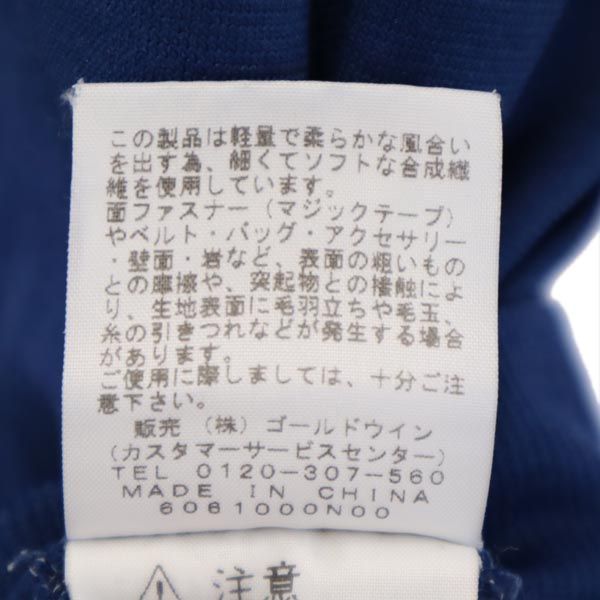 この製品は軽量で柔らかな風合い
を出す為、細くてソフトな合成繊
維を使用しています。
面ファスナー（マジックテープ）
やベルト・バッグ・アクセサリー
・壁面・岩など、表面の粗いもの
との摩擦や、突起物との接触によ
り、生地表面に毛羽立ちや毛玉、
糸の引きつれなどが発生する場合
があります。
ご使用に際しましては、十分ご注
意下さい。
販売 （株）ゴールドウイン
(カスタマーサービスセンター)
TEL 0120-307-560
MADE IN CHINA
6061000N00
注意